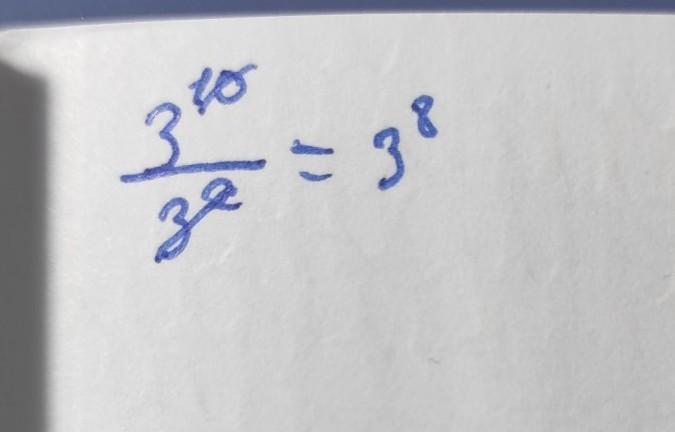 3^10 / 3^2 = 3^8